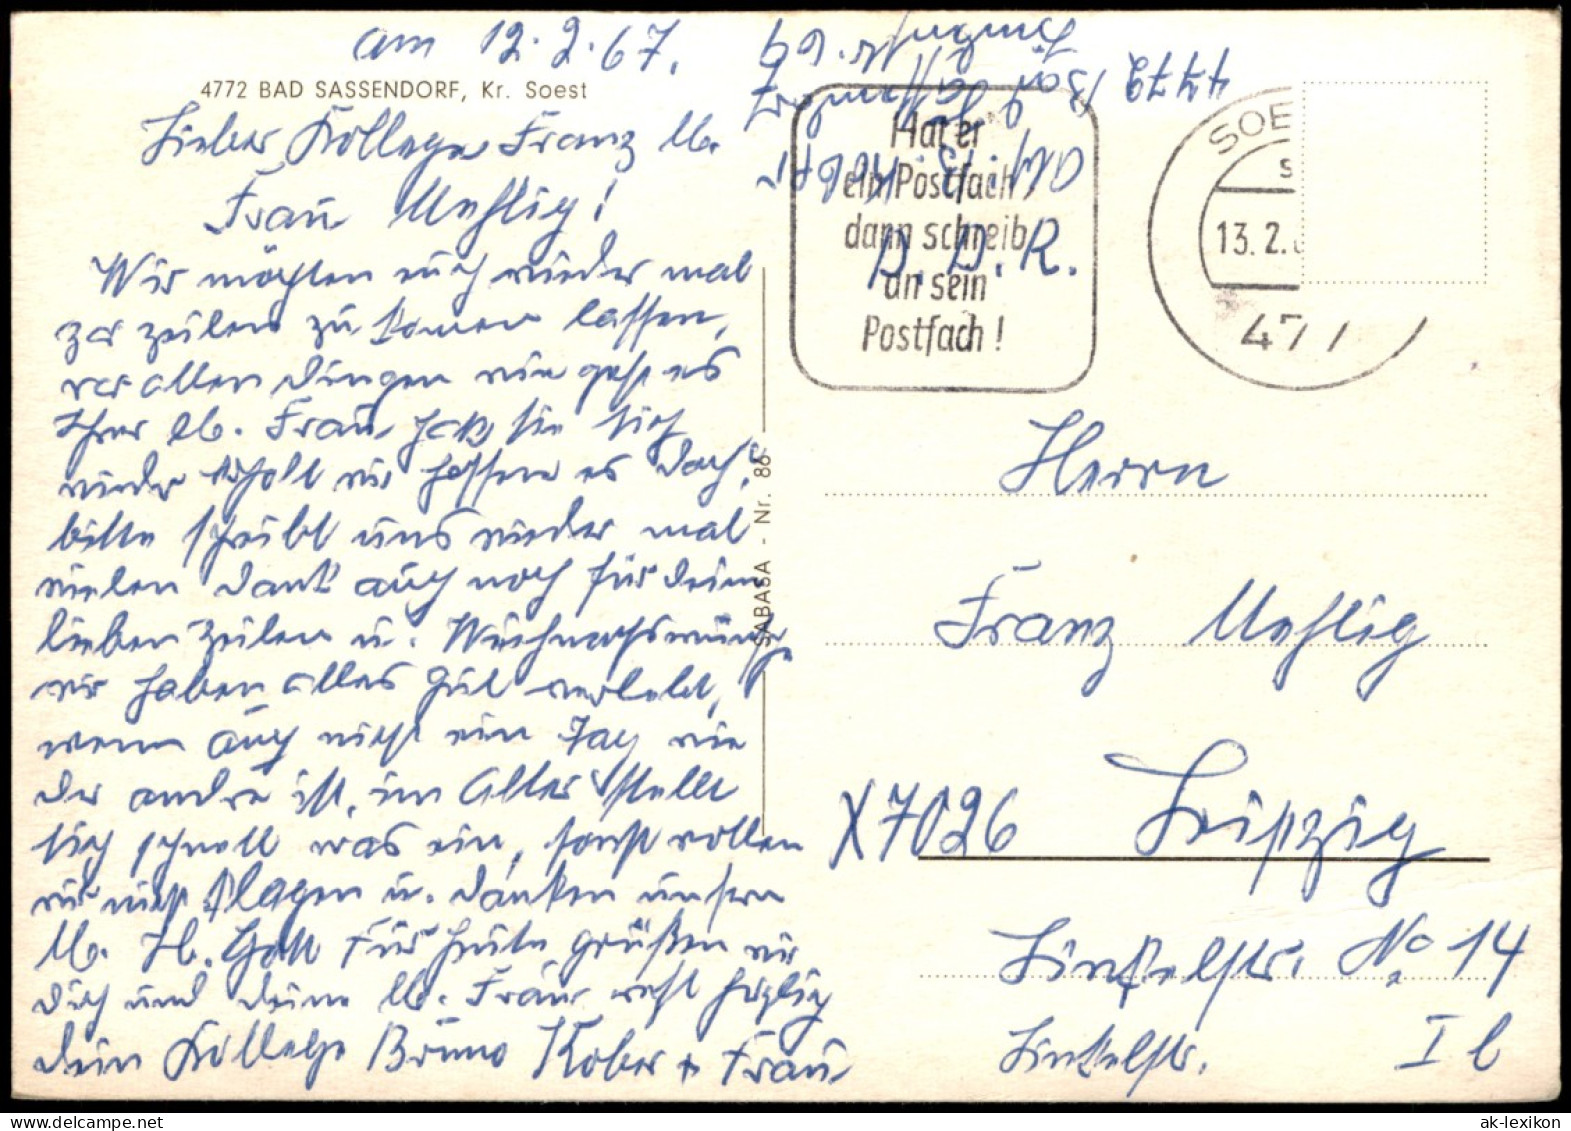 am 12.2.67.
4772 BAD SASSENDORF, Kr. Soest
Lieber Kollege Franz lb.
Frau Mehlig!
Wir möchten euch wieder mal
par zeilen zu komen lassen,
vor allen Dingen wie geht es
Ihrer lb. Frau, hat sie sich
wieder erholt wir hoffen es doch,
bitte schreibt uns wieder mal
vielen Dank auch noch für deine
lieben zeilen u. Weihnachtswünsche
wir haben alles gut verlebt,
wenn auch nicht ein Tag wie
der andre ist, im Alter stellt
sich schnell was ein, sonst wollen
wir nicht klagen u. danken unsern
lb. H. Gott für heute grüßen wir
dich und deine lb. Frau recht herzlich
dein Kollege Bruno Kober + Frau
4772 Bad Sassendorf
D.D.R.
Hat er
ein Postfach,
dann schreib
an sein
Postfach!
SOE
13.2.6
477
SABASA - Nr. 86
Herrn
Franz Mehlig
X7026 Leipzig
Linkelstr. No 14
Linkelstr. I l
ak-lexikon